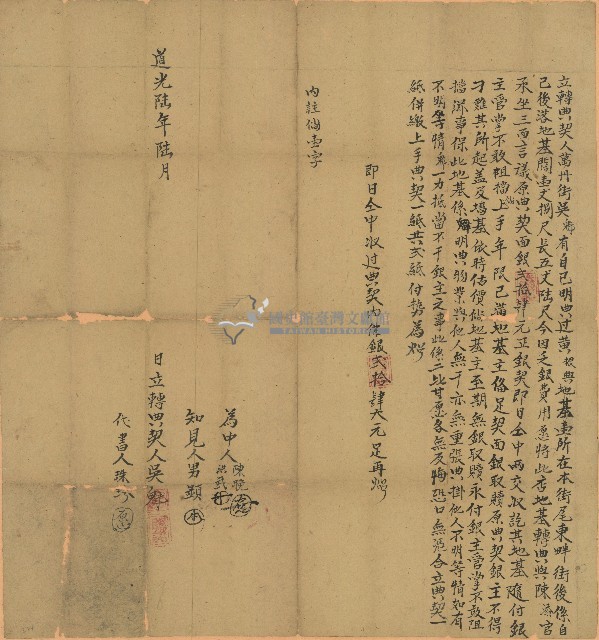 立轉典契人萬丹街吳鄉有自己明典过黄根興地基壹所在本街尾東畔街後係自
己後落地基闊壹丈捌尺長五丈陸尺今因乏銀費用愿將此店地基轉典與陳官
承坐三面言議原典契面銀弍拾肆元正銀契即日仝中兩交收訖其地基隨付銀
主管掌不敢阻擋上手年限已滿地基主俻足契面銀取贖原典契銀主不得
刁難其所起盖及塭基依時估價俻地基主至期無銀取贖永付銀主管掌不敢阻
擋滋事保此地基係明典物業與他人無干亦無重張典掛他人不明等情如有
不明等情一力抵當不干銀主之事此係二比甘愿各無反悔恐口無憑合立典契一
紙併繳上手典契一紙共弍紙付執為炤
即日仝中收过典契佛銀弍拾肆大元足再炤
內註俻壹字
道光陸年陸月
日立轉典契人吳
為中人陳
洪
知見人男顕
代書人珠
國史館臺灣文獻館
TAIWAN HISTORICA